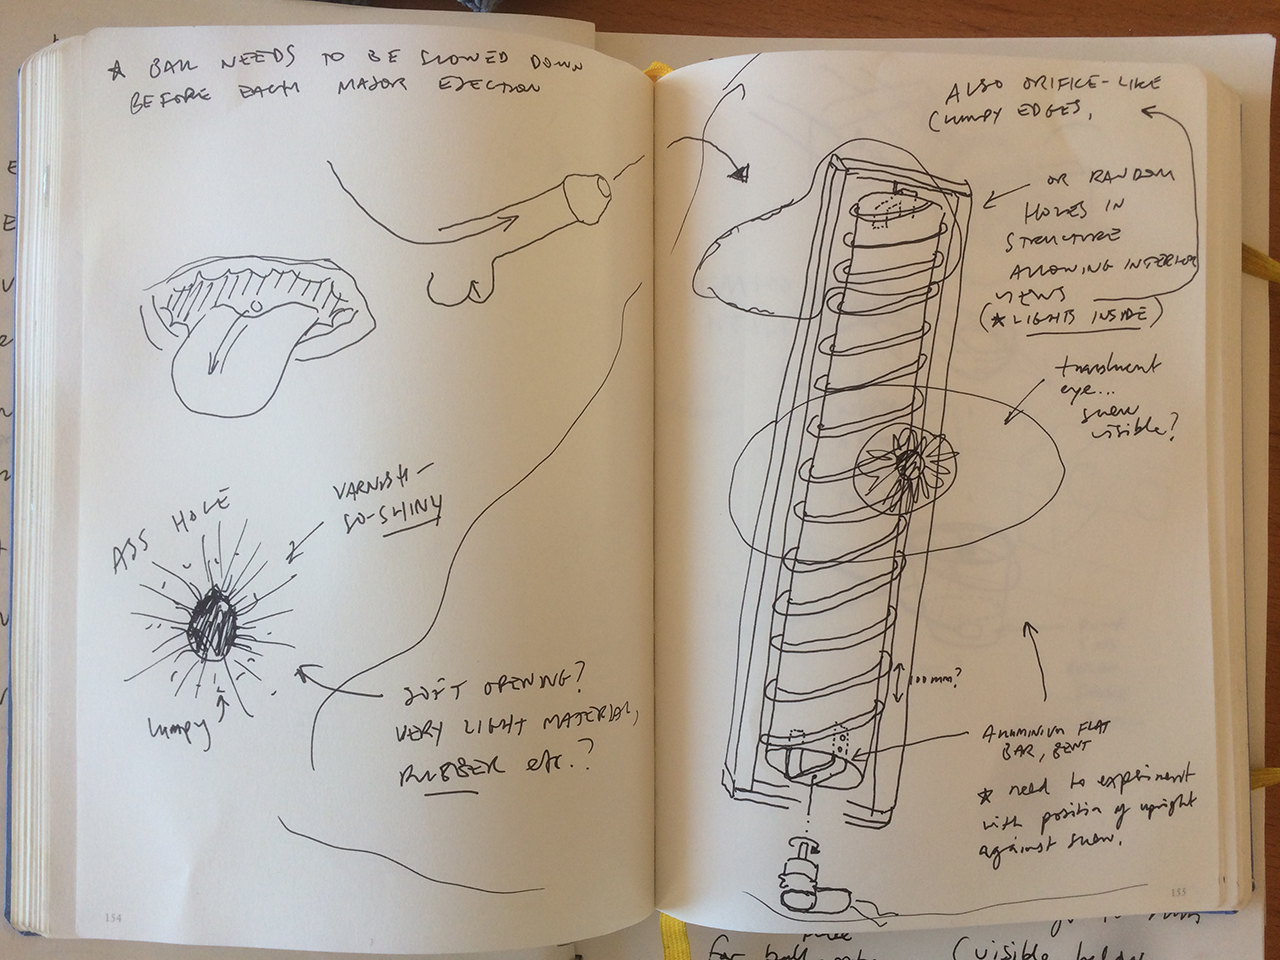 ★ BALL NEEDS TO BE SLOWED DOWN
BEFORE EACH MAJOR EJECTION
ASS HOLE
VARNISH –
SO-SHINY
lumpy
SOFT OPENING?
VERY LIGHT MATERIAL,
RUBBER etc.?
154
ALSO ORIFICE-LIKE
LUMPY EDGES,
OR RANDOM
HOLES IN
STRUCTURE
ALLOWING INTERIOR
VIEWS
(★ LIGHTS INSIDE)
translucent
eye...
screw
visible?
100mm?
ALUMINIUM FLAT
BAR, BENT
★ need to experiment
with position of upright
against screw.
155
for ball
(visible below